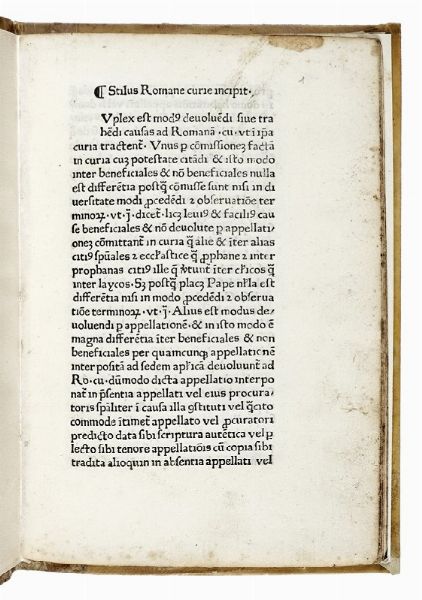 ¶ Stilus Romane curie incipit·
Vplex est modꝰ deuoluēdi siue tra
hēdi causas ad Romanā · cu · vt ī ip̄a
curia tractent̄ · Vnus ꝑ cōmissioneȝ factā
in curia cuȝ potestate citādi & ī isto modo
inter beneficiales & nō beneficiales nulla
est differētia postq̄ cōmisse sunt nisi in di
uersitate modi ꝓcedēdi ⁊ obseruatiōe ter
minoꝝ · vt · j̄ · dicet̄ · licȝ leuiꝰ & faciliꝰ cau
se beneficiales & nō deuolute ꝑ appellati/
oneȝ cōmittant̄ in curia q̄ alie & īter alias
citiꝰ sp̄uales ⁊ eccl̄astice q̄ ꝓphane ⁊ inter
prophanas citiꝰ ille q̄ v̄tunt̄ īter cl̄icos q̄
inter laycos · Sȝ postq̄ placȝ Pape nl̄la est
differētia nisi in modo ꝓcedēdi ⁊ obserua
tiōe terminoꝝ · vt · j̄ · Alius est modus de/
uoluendi ꝑ appellationē · & in isto modo ē
magna differētia īter beneficiales & non
beneficiales per quamcunqȝ appellationē
interpositā ad sedem ap̄licā deuoluunt̄ ad
Ro · cu · dūmodo dicta appellatio interpo
nat̄ in p̄sentia appellati vel eius procura/
toris sp̄aliter ī causa illa ꝯstituti vel q̄cito
commode ītimet̄ appellato vel ꝓcuratori
predicto data sibi scriptura autētica vel ꝑ
lecto sibi tenore appellatiōis cū copia sibi
tradita alioquin in absentia appellati vel